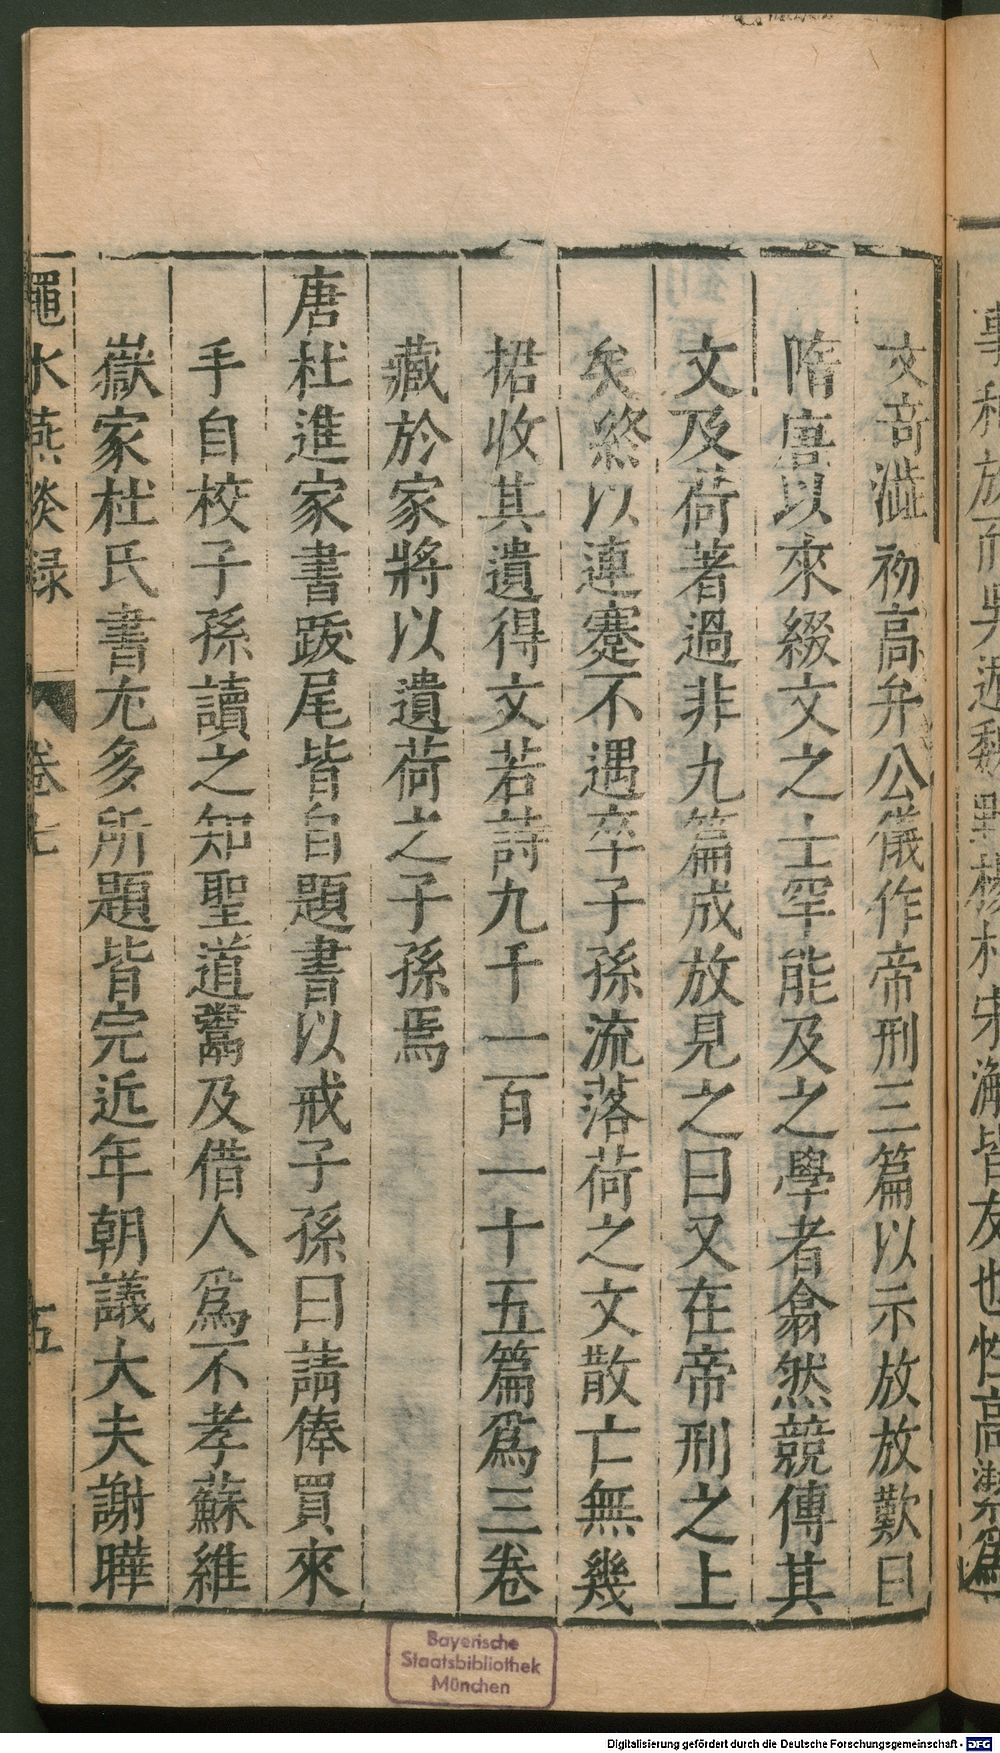 文奇澁初高弁公儀作帝刑三篇以示放放歎曰
隋唐以來綴文之士罕能及之學者翕然競傳其
文及荷著過非九篇成放見之曰又在帝刑之上
矣終以連蹇不遇卒子孫流落荷之文散亡無幾
捃收其遺得文若詩九千一百一十五篇爲三卷
藏於家將以遺荷之子孫焉
唐杜進家書跋尾皆自題書以戒子孫曰請俸買來
手自校子孫讀之知聖道鬻及借人爲不孝蘇維
嶽家杜氏書尢多所題皆完近年朝議大夫謝曄
澠水燕談録 卷七 五
Bayerische
Staatsbibliothek
München
Digitalisierung gefördert durch die Deutsche Forschungsgemeinschaft - DFG